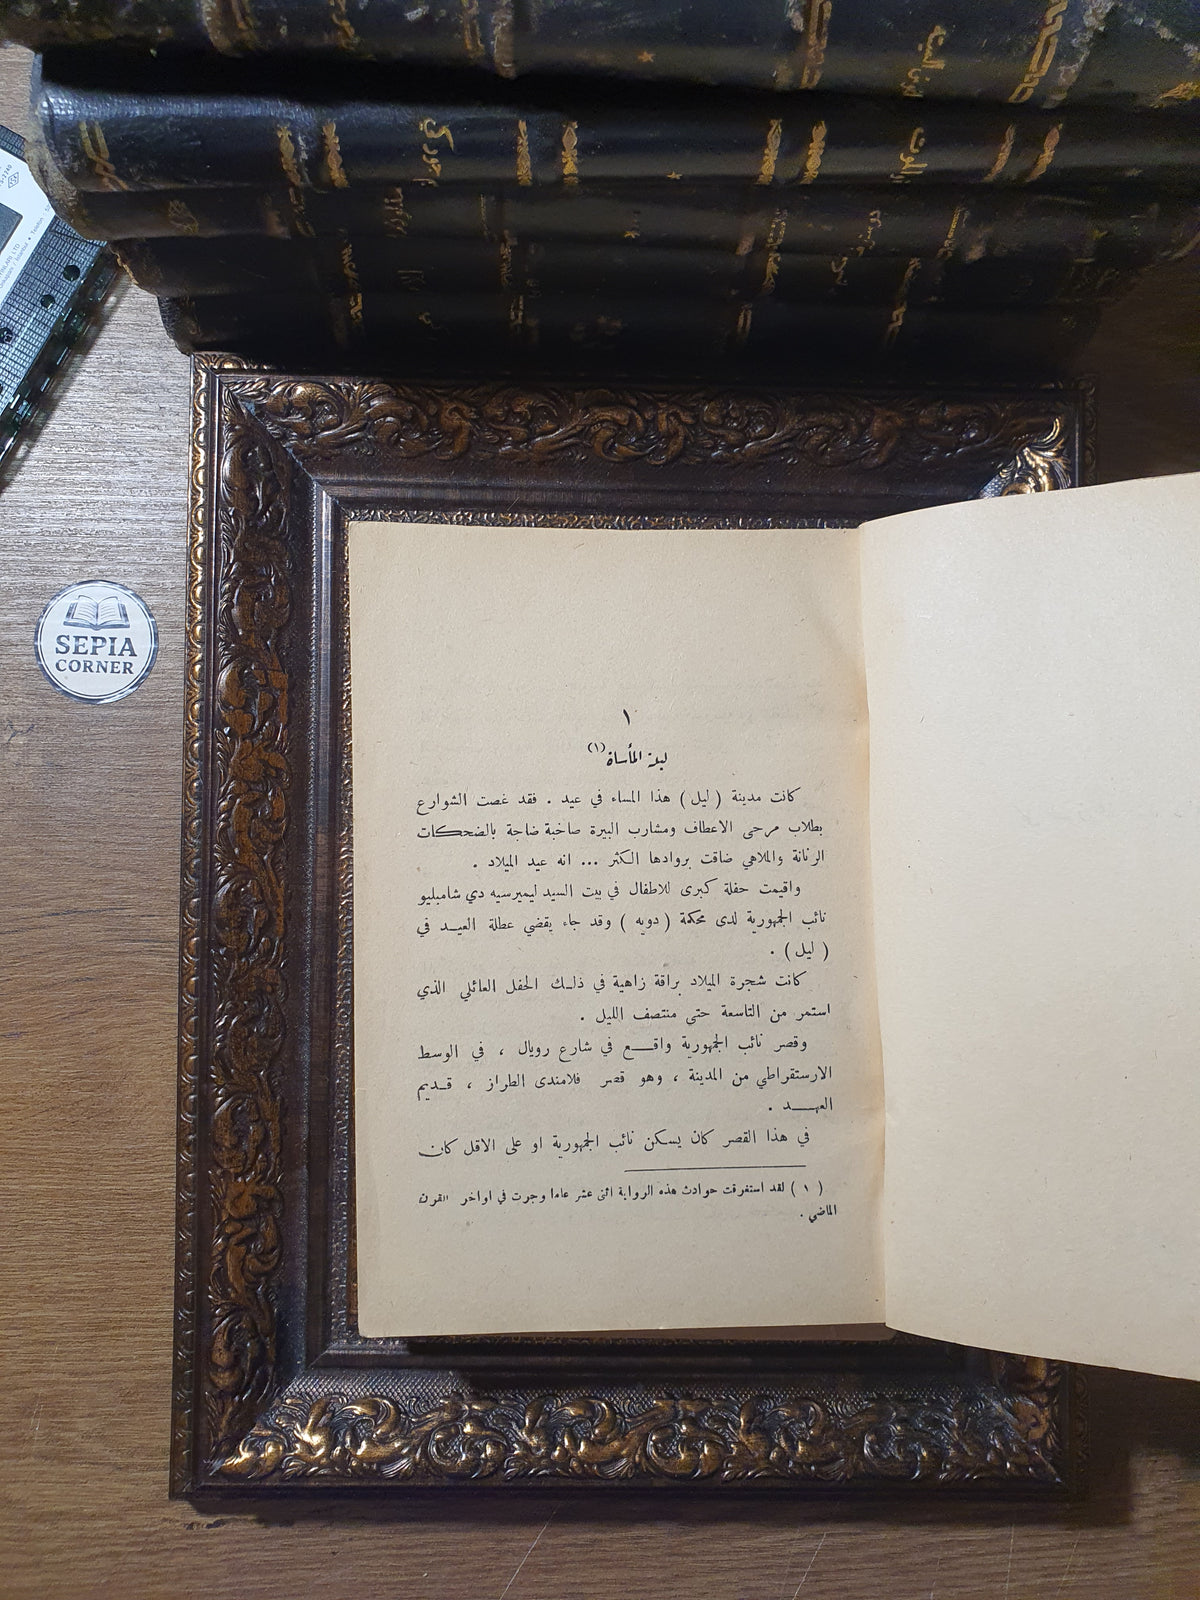 SEPIA
CORNER
١
ليلة المأساة (١)
كانت مدينة ( ليل ) هذا المساء في عيد . فقد غصت الشوارع
بطلاب مرحى الاعطاف ومشارب البيرة صاخبة ضاجة بالضحكات
الرنانة والملاهي ضاقت بروادها الكثر ... انه عيد الميلاد .
واقيمت حفلة كبرى للاطفال في بيت السيد ليميرسيه دي شامبليو
نائب الجمهورية لدى محكمة ( دويه ) وقد جاء يقضي عطلة العيد في
( ليل ) .
كانت شجرة الميلاد براقة زاهية في ذلك الحفل العائلي الذي
استمر من التاسعة حتى منتصف الليل .
وقصر نائب الجمهورية واقع في شارع رويال ، في الوسط
الارستقراطي من المدينة ، وهو قصر فلامندى الطراز ، قديم
العهد .
في هذا القصر كان يسكن نائب الجمهورية او على الاقل كان
( ١ ) لقد استغرقت حوادث هذه الرواية اثنى عشر عاما وجرت في اواخر القرن
الماضي .